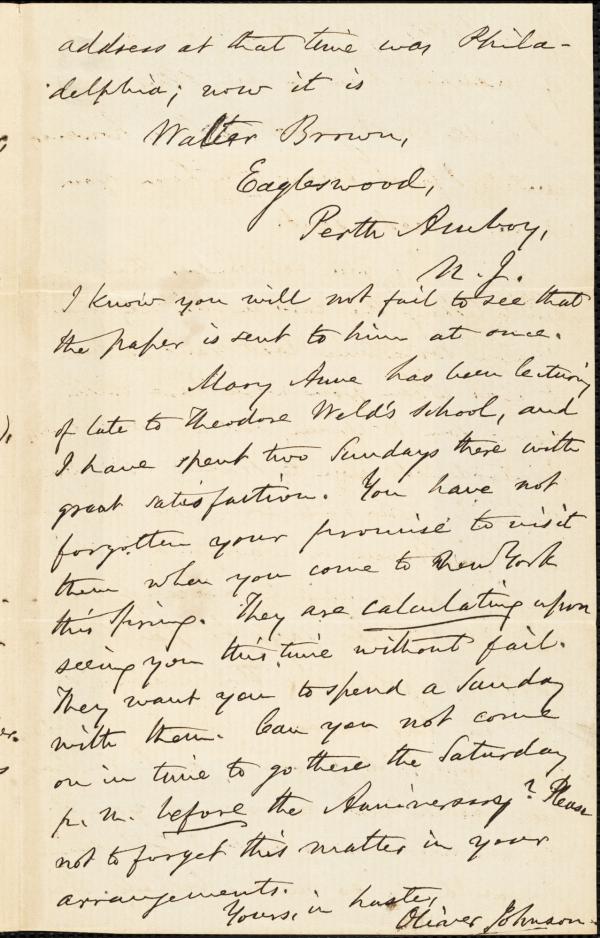 address at that time was Phila-
delphia; now it is
Walter Brown,
Eagleswood,
Perth Amboy,
N. J.
I know you will not fail to see that
the paper is sent to him at once.
Mary Anne has been lecturing
of late to Theodore Weld's school, and
I have spent two Sundays there with
great satisfaction. You have not
forgotten your promise to visit
them when you come to New York
this spring. They are calculating upon
seeing you this time without fail.
They want you to spend a Sunday
with them. Can you not come
on in time to go there the Saturday
p. m. before the Anniversary? Please
not to forget this matter in your
arrangements.
Yours, in haste,
Oliver Johnson.